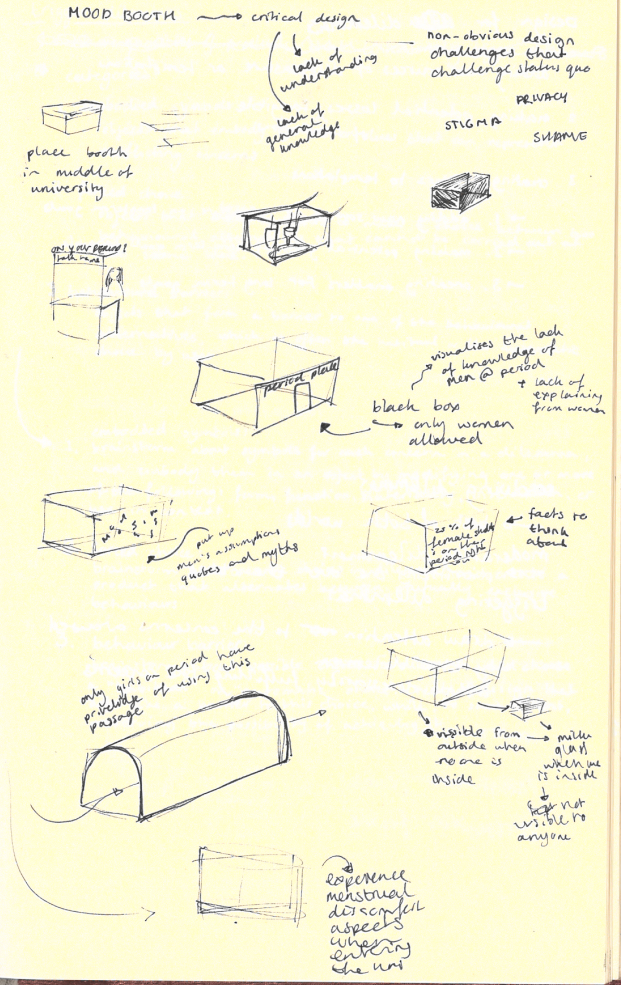 MOOD BOOTH → critical design
lack of
understanding
non-obvious design
challenges that
challenge status quo
lack of
general
knowledge
PRIVACY
STIGMA
SHAME
place booth
in middle of
university
ON YOUR PERIOD?
period place
visualises the lack
of knowledge of
men @ period
+ lack of
explaining
from women
black box
→ only women
allowed
put up
men's assumptions
quotes and myths
25% of
female
on their
period
← facts to
think
about
only girls on period have
priviledge of using this
passage
visible from
outside when
no one is
inside
milk
glass
when
is inside
not
visible to
anyone
experence
menstrual
discomfort
aspects
when
entering
the uni